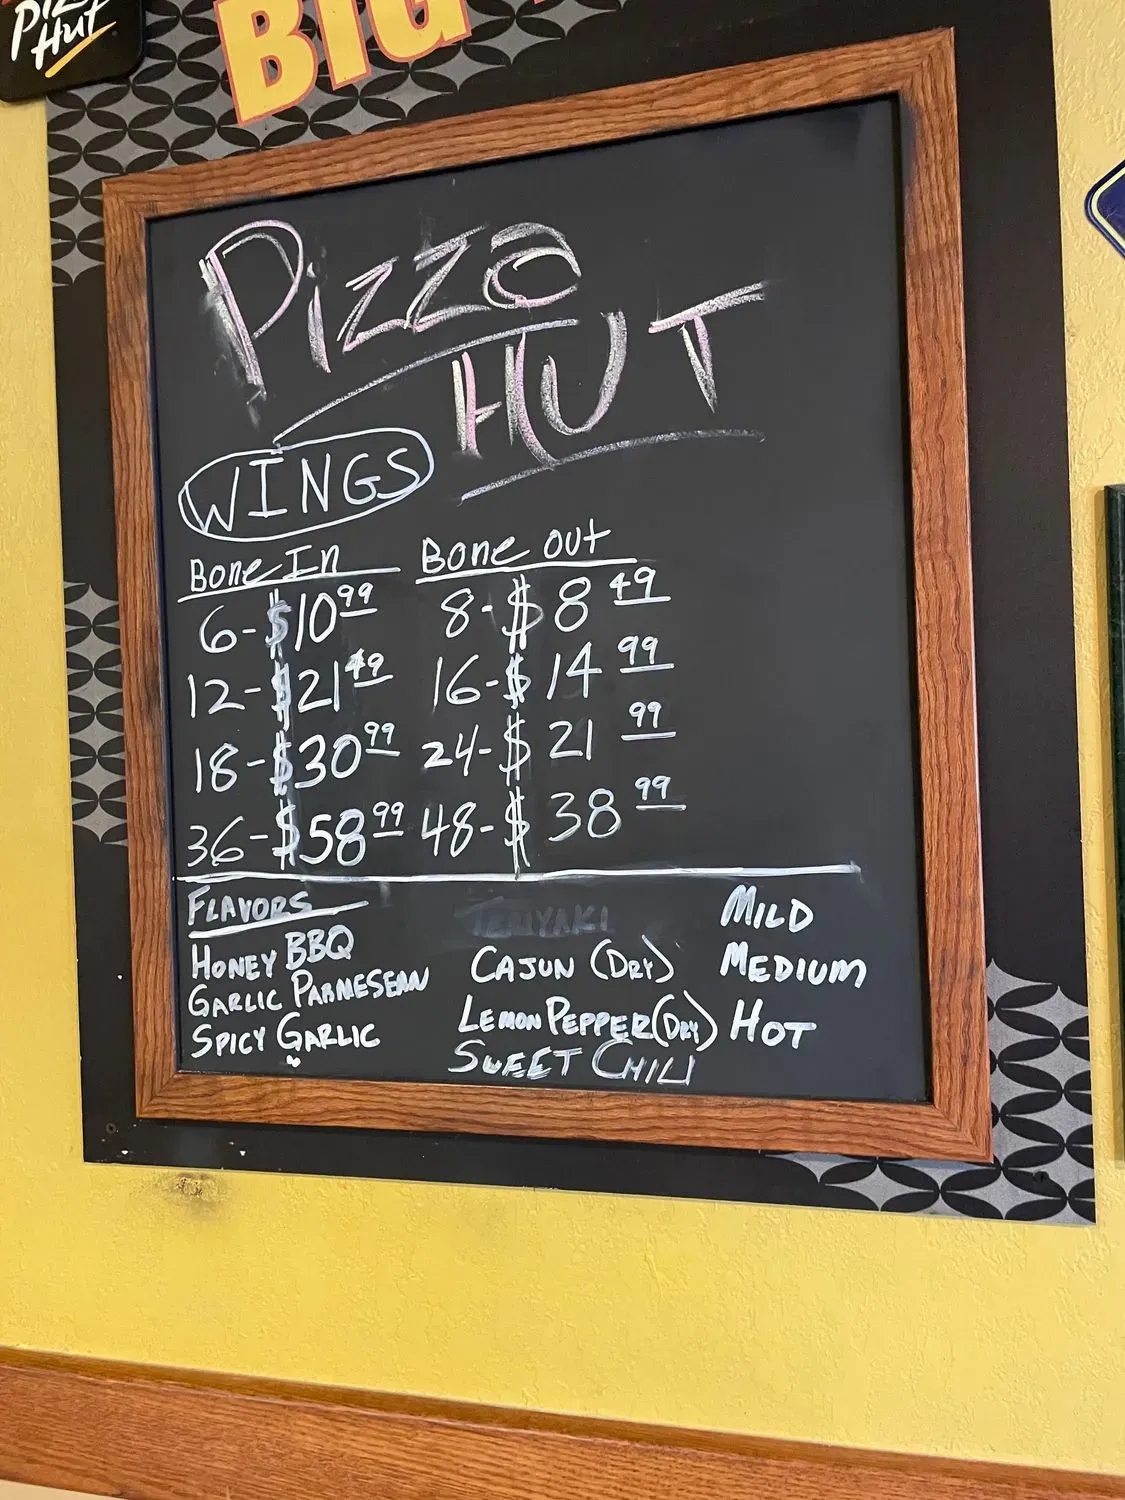 Pizza
Hut
BIG
Pizza
HUT
WINGS
Bone In
6-$10.99
12-$21.49
18-$30.99
36-$58.99
Bone out
8-$8.49
16-$14.99
24-$21.99
48-$38.99
FLAVORS
HONEY BBQ
GARLIC PARMESEAN
SPICY GARLIC
TERIYAKI
CAJUN (DRY)
LEMON PEPPER (DRY)
SWEET CHILI
MILD
MEDIUM
HOT